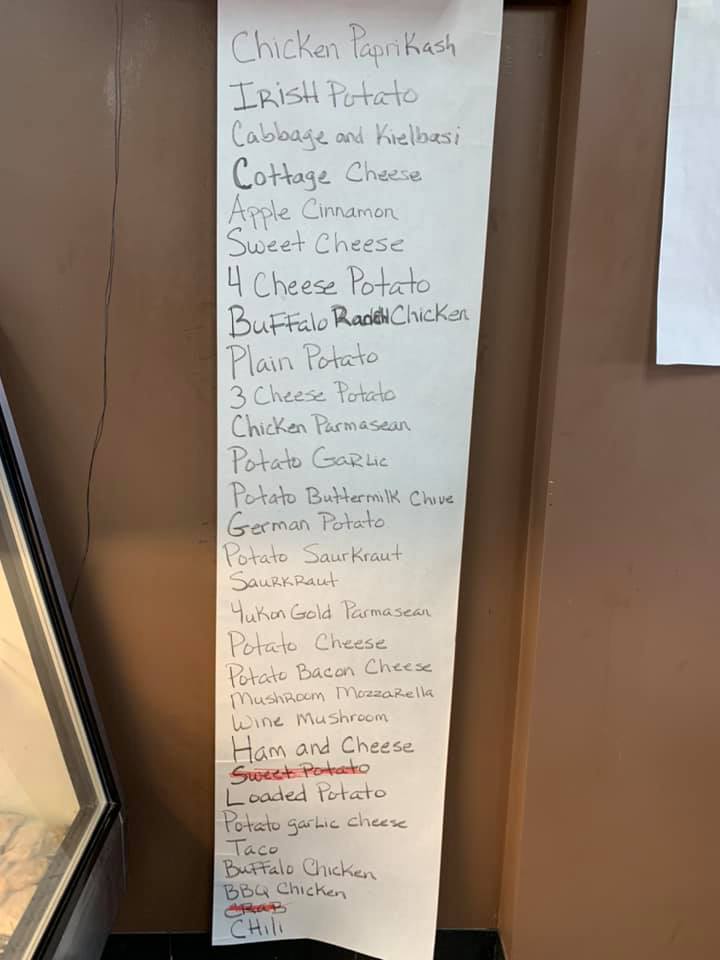 Chicken Paprikash
Irish Potato
Cabbage and Kielbasi
Cottage Cheese
Apple Cinnamon
Sweet Cheese
4 Cheese Potato
Buffalo Ranch Chicken
Plain Potato
3 Cheese Potato
Chicken Parmasean
Potato Garlic
Potato Buttermilk Chive
German Potato
Potato Saurkraut
Saurkraut
Yukon Gold Parmasean
Potato Cheese
Potato Bacon Cheese
Mushroom Mozzarella
Wine Mushroom
Ham and Cheese
Sweet Potato
Loaded Potato
Potato garlic cheese
Taco
Buffalo Chicken
BBQ Chicken
Crab
Chili